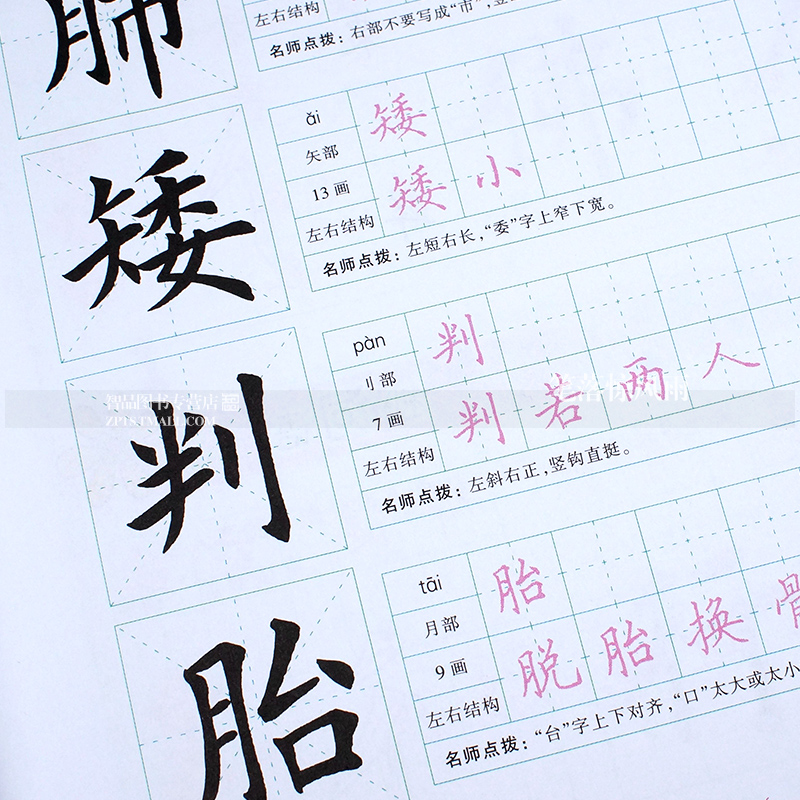 肺
左右结构
名师点拨：右部不要写成“市”，竖
矮
ǎi
矮
矢部
13画
矮小
左右结构
名师点拨：左短右长，“委”字上窄下宽。
判
pàn
判
刂部
7画
判若两人
左右结构
名师点拨：左斜右正，竖钩直挺。
智品图书专营店
ZP18.TMALL.COM
笔落惊风雨
胎
tāi
胎
月部
9画
脱胎换骨
左右结构
名师点拨：“台”字上下对齐，“口”太大或太小